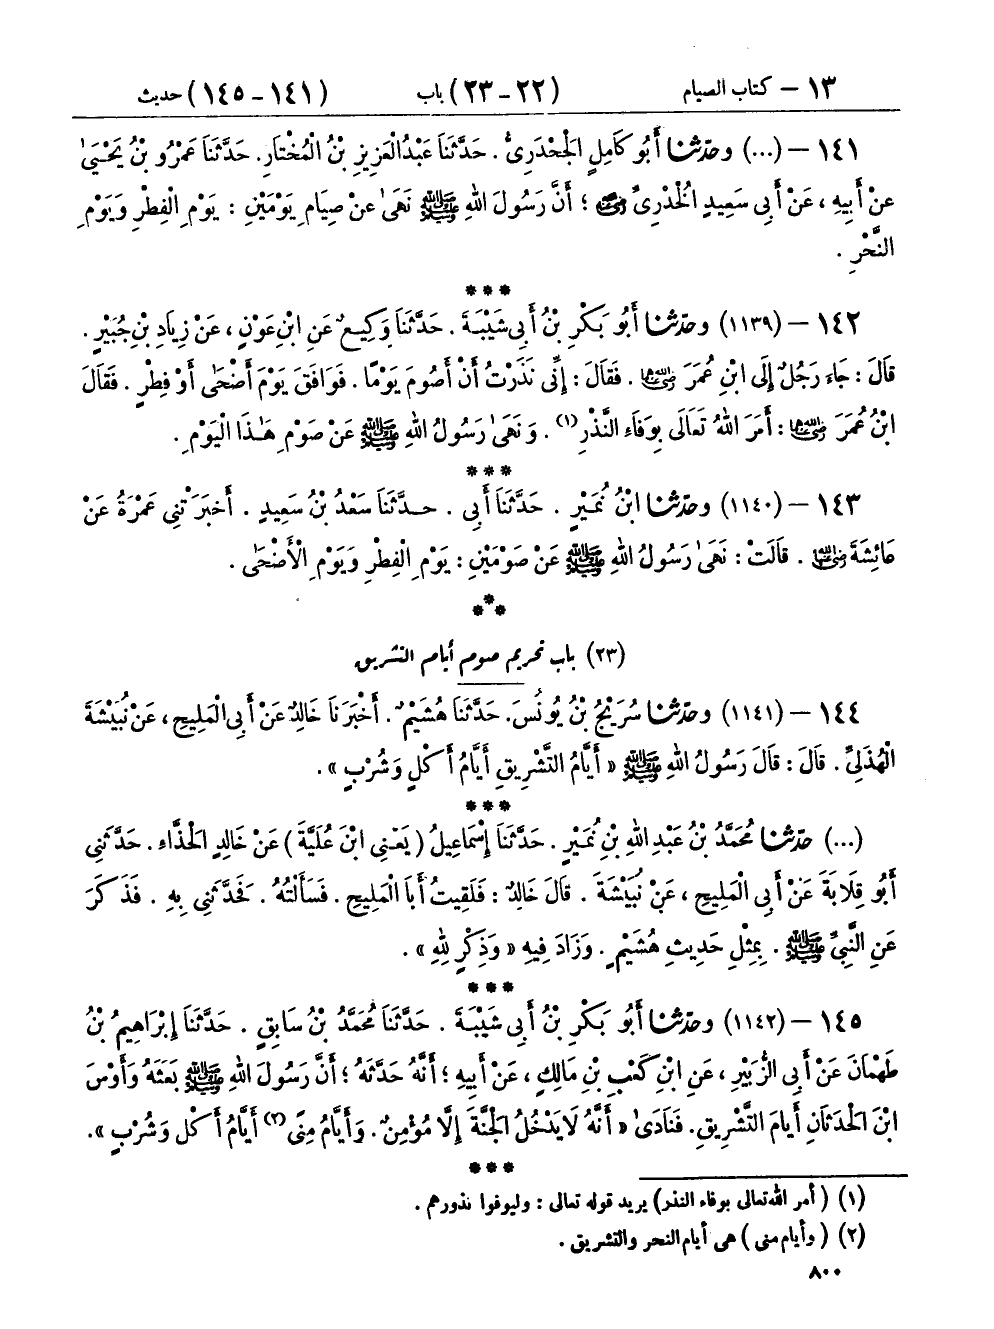 ١٣ – كتاب الصيام (٢٢-٢٣) باب (١٤١-١٤٥) حديث
١٤١ – (...) وحَدَّثَنَا أَبُو كَامِلٍ الْجَحْدَرِيُّ . حَدَّثَنَا عَبْدُ الْعَزِيزِ بْنُ الْمُخْتَارِ. حَدَّثَنَا عَمْرُو بْنُ يَحْيَىٰ
عَنْ أَبِيهِ ، عَنْ أَبِي سَعِيدٍ الْخُدْرِيِّ رضي الله عنه ؛ أَنَّ رَسُولَ اللهِ ﷺ نَهَىٰ عَنْ صِيَامِ يَوْمَيْنِ : يَوْمِ الْفِطْرِ وَيَوْمِ
النَّحْرِ .
***
١٤٢ – (١١٣٩) وحَدَّثَنَا أَبُو بَكْرِ بْنُ أَبِي شَيْبَةَ . حَدَّثَنَا وَكِيعٌ عَنِ ابْنِ عَوْنٍ ، عَنْ زِيَادِ بْنِ جُبَيْرٍ .
قَالَ : جَاءَ رَجُلٌ إِلَى ابْنِ عُمَرَ رضي الله عنهما . فَقَالَ : إِنِّي نَذَرْتُ أَنْ أَصُومَ يَوْمًا . فَوَافَقَ يَوْمَ أَضْحَىٰ أَوْ فِطْرٍ . فَقَالَ
ابْنُ عُمَرَ رضي الله عنهما : أَمَرَ اللهُ تَعَالَى بِوَفَاءِ النَّذْرِ(١) . وَنَهَىٰ رَسُولُ اللهِ ﷺ عَنْ صَوْمِ هَـٰذَا الْيَوْمِ .
***
١٤٣ – (١١٤٠) وحَدَّثَنَا ابْنُ نُمَيْرٍ . حَدَّثَنَا أَبِي . حَدَّثَنَا سَعْدُ بْنُ سَعِيدٍ . أَخْبَرَتْنِي عَمْرَةُ عَنْ
عَائِشَةَ رضي الله عنها . قَالَتْ : نَهَىٰ رَسُولُ اللهِ ﷺ عَنْ صَوْمَيْنِ : يَوْمِ الْفِطْرِ وَيَوْمِ الْأَضْحَىٰ .
***
(٢٣) باب تحريم صوم أيام التشريق
١٤٤ – (١١٤١) وحَدَّثَنَا سُرَيْجُ بْنُ يُونُسَ. حَدَّثَنَا هُشَيْمٌ . أَخْبَرَنَا خَالِدٌ عَنْ أَبِي الْمَلِيحِ، عَنْ نُبَيْشَةَ
الْهُذَلِيِّ . قَالَ : قَالَ رَسُولُ اللهِ ﷺ « أَيَّامُ التَّشْرِيقِ أَيَّامُ أَكْلٍ وَشُرْبٍ » .
***
(...) حَدَّثَنَا مُحَمَّدُ بْنُ عَبْدِ اللهِ بْنِ نُمَيْرٍ . حَدَّثَنَا إِسْمَاعِيلُ ( يَعْنِي ابْنَ عُلَيَّةَ ) عَنْ خَالِدٍ الْحَذَّاءِ . حَدَّثَنِي
أَبُو قِلَابَةَ عَنْ أَبِي الْمَلِيحِ ، عَنْ نُبَيْشَةَ . قَالَ خَالِدٌ : فَلَقِيتُ أَبَا الْمَلِيحِ . فَسَأَلْتُهُ . فَحَدَّثَنِي بِهِ . فَذَكَرَ
عَنِ النَّبِيِّ ﷺ . بِمِثْلِ حَدِيثِ هُشَيْمٍ . وَزَادَ فِيهِ « وَذِكْرٍ لِلّٰهِ » .
***
١٤٥ – (١١٤٢) وحَدَّثَنَا أَبُو بَكْرِ بْنُ أَبِي شَيْبَةَ . حَدَّثَنَا مُحَمَّدُ بْنُ سَابِقٍ . حَدَّثَنَا إِبْرَاهِيمُ بْنُ
طَهْمَانَ عَنْ أَبِي الزُّبَيْرِ ، عَنِ ابْنِ كَعْبِ بْنِ مَالِكٍ ، عَنْ أَبِيهِ ؛ أَنَّهُ حَدَّثَهُ ؛ أَنَّ رَسُولَ اللهِ ﷺ بَعَثَهُ وَأَوْسَ
ابْنَ الْحَدَثَانِ أَيَّامَ التَّشْرِيقِ. فَنَادَىٰ « أَنَّهُ لَا يَدْخُلُ الْجَنَّةَ إِلَّا مُؤْمِنٌ . وَأَيَّامُ مِنًى(٢) أَيَّامُ أَكْلٍ وَشُرْبٍ ».
***
(١) ( أمر الله تعالى بوفاء النذر) يريد قوله تعالى : وليوفوا نذورهم .
(٢) ( وأيام منى ) هي أيام النحر والتشريق .
٨٠٠